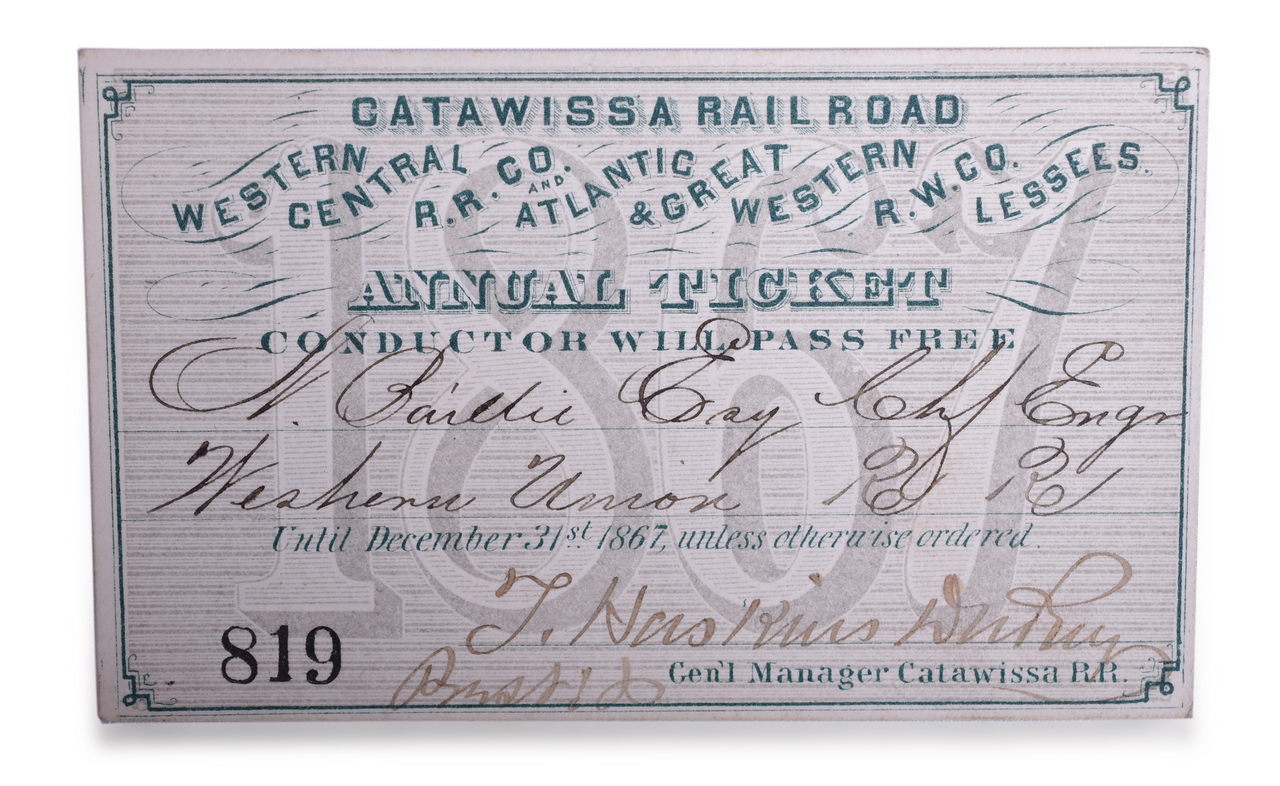 CATAWISSA RAILROAD
WESTERN CENTRAL R.R. CO. AND ATLANTIC & GREAT WESTERN R.W. CO. LESSEES.
1867
ANNUAL TICKET
CONDUCTOR WILL PASS FREE
Esqr Chf Engr
Western Union R R
Until December 31st 1867, unless otherwise ordered.
T. Haskins
819
Gen'l Manager Catawissa R.R.